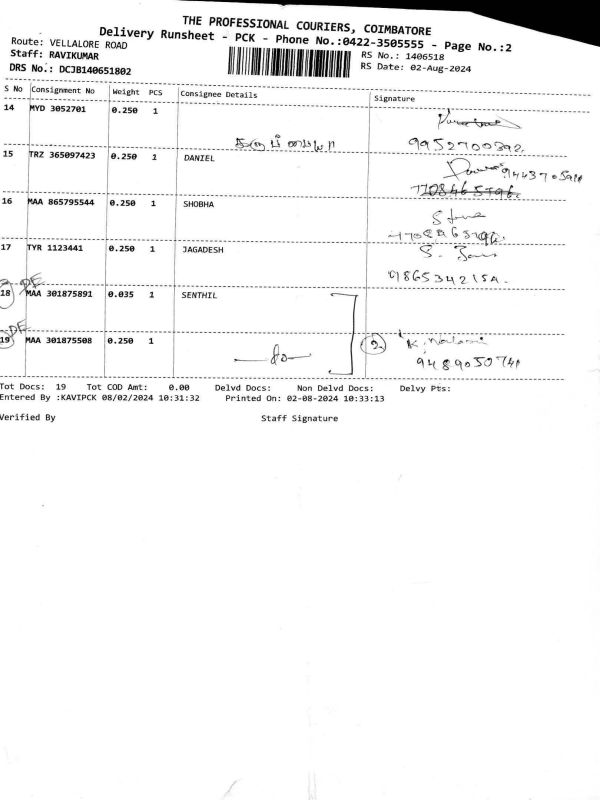 THE PROFESSIONAL COURIERS, COIMBATORE
Delivery Runsheet - PCK - Phone No.:0422-3505555 - Page No.:2
Route: VELLALORE ROAD
RS No.: 1406518
Staff: RAVIKUMAR
RS Date: 02-Aug-2024
DRS No.: DCJB140651802
S No Consignment No Weight PCS Consignee Details Signature
14 MYD 3052701 0.250 1
9952700392
15 TRZ 365097423 0.250 1 DANIEL
16 MAA 865795544 0.250 1 SHOBHA
17 TYR 1123441 0.250 1 JAGADESH
DE
18 MAA 301875891 0.035 1 SENTHIL
DE
19 MAA 301875508 0.250 1
-do-
2
9489050741
Tot Docs: 19 Tot COD Amt: 0.00 Delvd Docs: Non Delvd Docs: Delvy Pts:
Entered By :KAVIPCK 08/02/2024 10:31:32 Printed On: 02-08-2024 10:33:13
Verified By Staff Signature